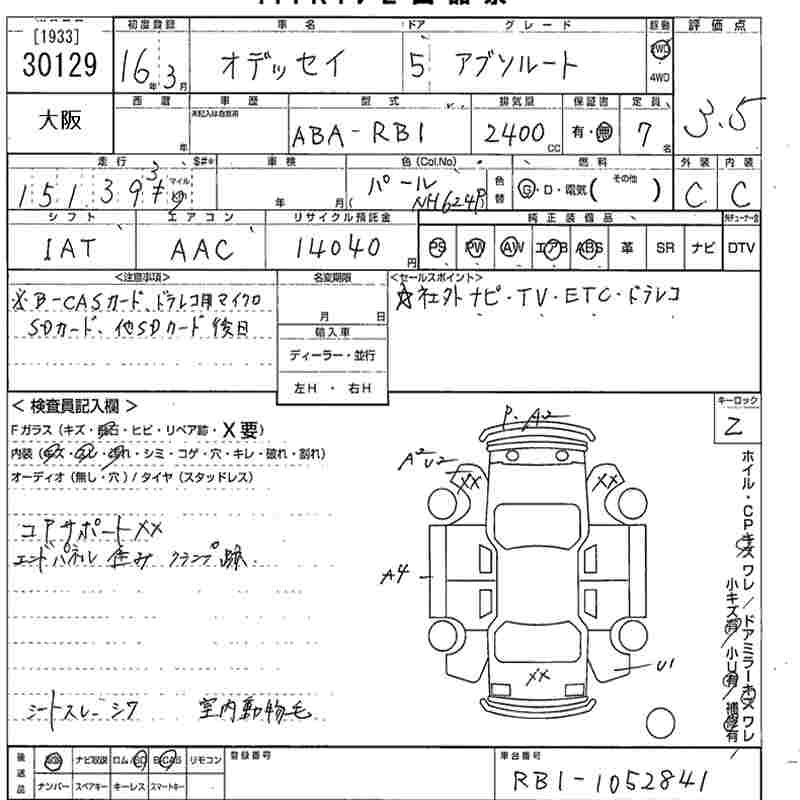 [1933]
30129
大阪
初度登録
16年3月
車名
オデッセイ
ドア
5
グレード
アブソルート
駆動
2WD
4WD
評価点
3.5
西暦
年
車歴
未記入は自家用
型式
ABA-RB1
排気量
2400cc
保証書
有・無
定員
7名
走行
S#*
マイル
車検
年 月(
色(Col.No)
パール
NH624P
色替
燃料
G・D・電気( その他 )
外装
C
内装
C
シフト
IAT
エアコン
AAC
リサイクル預託金
14040円
純正装備品
PS PW AW エアB ABS 革 SR ナビ DTV
<注意事項>
※B-CASカード、ドラレコ用マイクロ
SDカード、他SDカード後日
名変期限
月 日
輸入車
ディーラー・並行
左H・右H
<セールスポイント>
☆社外ナビ・TV・ETC・ドラレコ
<検査員記入欄>
Fガラス(キズ・飛石・ヒビ・リペア跡・X要)
内装(キズ・スレ・汚れ・シミ・コゲ・穴・キレ・破れ・割れ)
オーディオ(無し・穴)/タイヤ(スタッドレス)
コアサポートXX
エンドパネル歪み クランプ跡
シートスレ シワ 室内動物毛
P.A2
A2 U2
XX
XX
A4
XX
U1
キーロック
Z
ホイル・CPキズワレ/ドアミラーキズワレ
小キズ有/小U有/補修有
後送品
ナビ取説 ロム/SD B-CAS リモコン
ナンバー スペアキー キーレス スマートキー
登録番号
車台番号
RB1-1052841